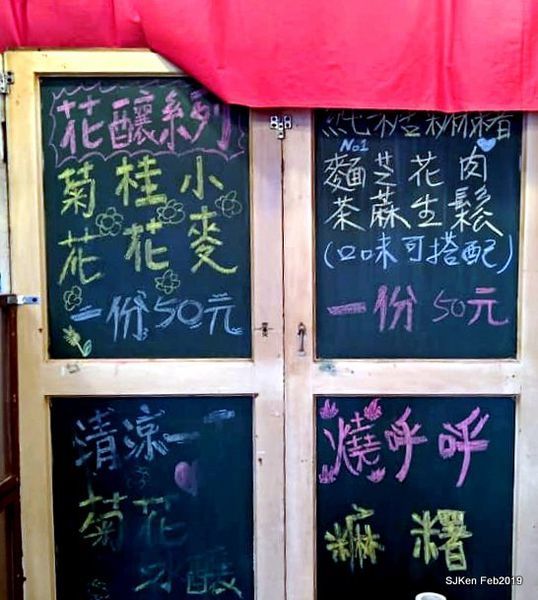 花釀系列
菊花 桂花 小麥
一份50元
純糖麻糬
No1
麵茶 芝蔴 花生 肉鬆
(口味可搭配)
一份 50元
清涼一
菊花
冰釀
燒呼呼
麻糬
SJKen Feb2019